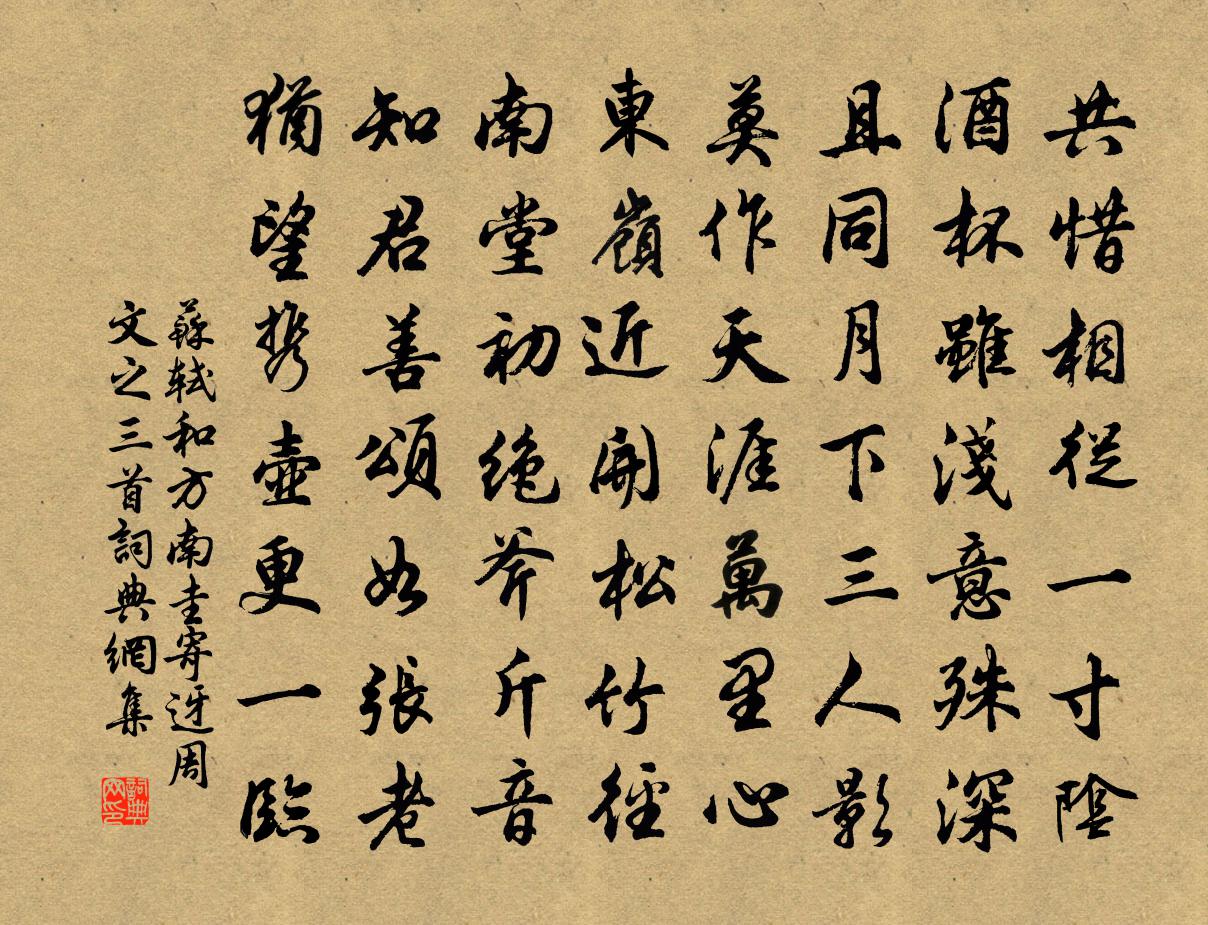 共惜相從一寸陰
酒杯雖淺意殊深
且同月下三人影
莫作天涯萬里心
東嶺近開松竹徑
南堂初絶斧斤音
知君善頌如張老
猶望攜壺更一臨
蘇軾和方南圭寄迓周
文之三首詞典網集
詞典
网印